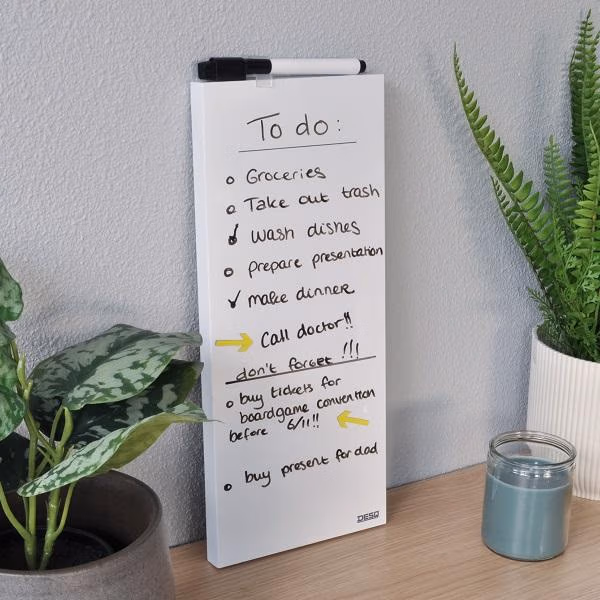 To do:
Groceries
Take out trash
wash dishes
prepare presentation
make dinner
Call doctor!!
don't forget !!!
buy tickets for
boardgame convention
before 6/11!!
buy present for dad
DESQ